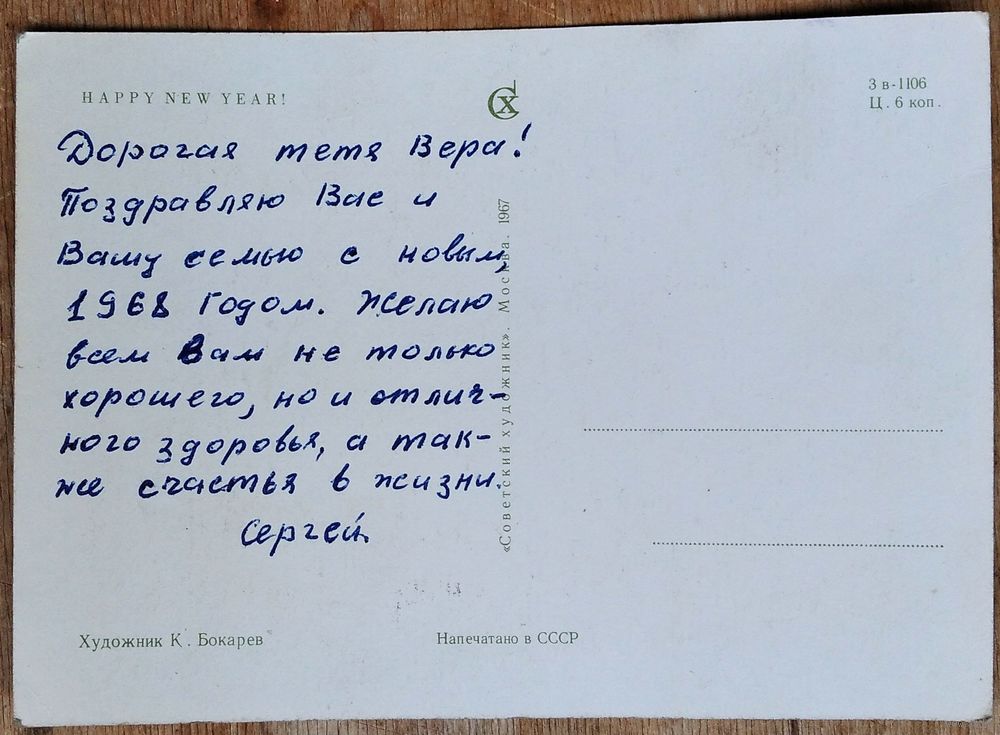 HAPPY NEW YEAR!
СХ
3 в-1106
Ц. 6 коп.
Дорогая тетя Вера!
Поздравляю Вас и
Вашу семью с новым,
1968 годом. Желаю
всем Вам не только
хорошего, но и отлич-
ного здоровья, а так-
же счастья в жизни.
Сергей
«Советский художник». Москва. 1967
Художник К. Бокарев
Напечатано в СССР